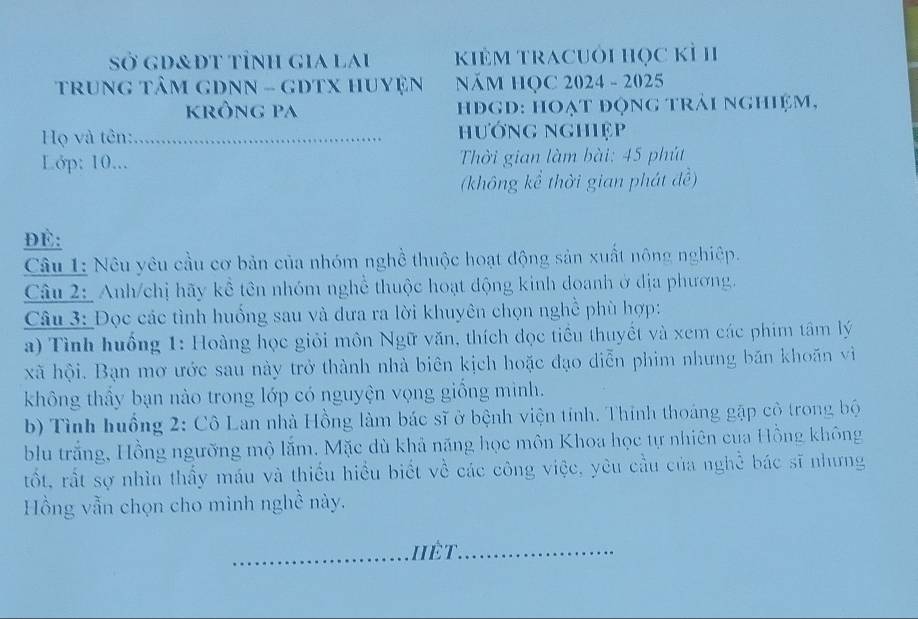 SỞ GD&ĐT TỈNH GIA LAI
TRUNG TÂM GDNN – GDTX HUYỆN
KRÔNG PA
Họ và tên:................................................
Lớp: 10...
KIỂM TRA CUỐI HỌC KÌ II
NĂM HỌC 2024 - 2025
HĐGD: HOẠT ĐỘNG TRẢI NGHIỆM,
HƯỚNG NGHIỆP
Thời gian làm bài: 45 phút
(không kể thời gian phát đề)
ĐỀ:
Câu 1: Nêu yêu cầu cơ bản của nhóm nghề thuộc hoạt động sản xuất nông nghiệp.
Câu 2: Anh/chị hãy kể tên nhóm nghề thuộc hoạt động kinh doanh ở địa phương.
Câu 3: Đọc các tình huống sau và đưa ra lời khuyên chọn nghề phù hợp:
a) Tình huống 1: Hoàng học giỏi môn Ngữ văn, thích đọc tiểu thuyết và xem các phim tâm lý
xã hội. Bạn mơ ước sau này trở thành nhà biên kịch hoặc đạo diễn phim nhưng băn khoăn vì
không thấy bạn nào trong lớp có nguyện vọng giống mình.
b) Tình huống 2: Cô Lan nhà Hồng làm bác sĩ ở bệnh viện tỉnh. Thỉnh thoảng gặp cô trong bộ
blu trắng, Hồng ngưỡng mộ lắm. Mặc dù khả năng học môn Khoa học tự nhiên của Hồng không
tốt, rất sợ nhìn thấy máu và thiếu hiểu biết về các công việc, yêu cầu của nghề bác sĩ nhưng
Hồng vẫn chọn cho mình nghề này.
........................HẾT.....................